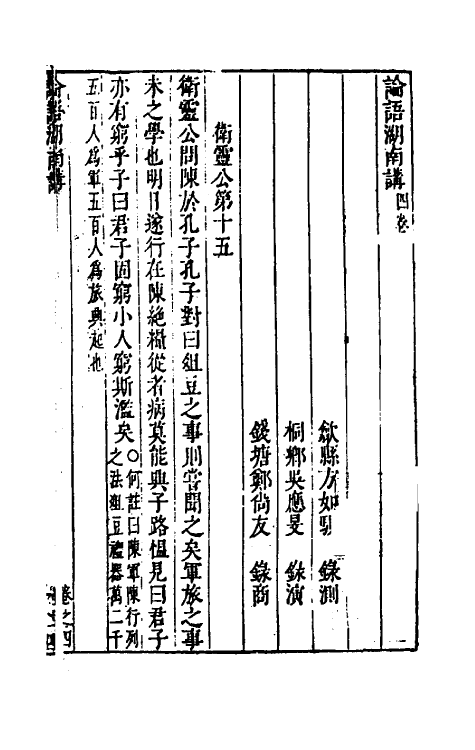 論語湖南講 四卷
歙縣方如騏 錄測
桐鄉吳應旻 錄演
錢塘鄭尚友 錄商
衛靈公第十五
衛靈公問陳於孔子孔子對曰俎豆之事則嘗聞之矣軍旅之事
未之學也明日遂行在陳絕糧從者病莫能興子路慍見曰君子
亦有窮乎子曰君子固窮小人窮斯濫矣
○何註曰陳軍陳行列
之法俎豆禮器萬二千
五百人爲軍五百人爲旅興起也
論語湖南講
卷之四